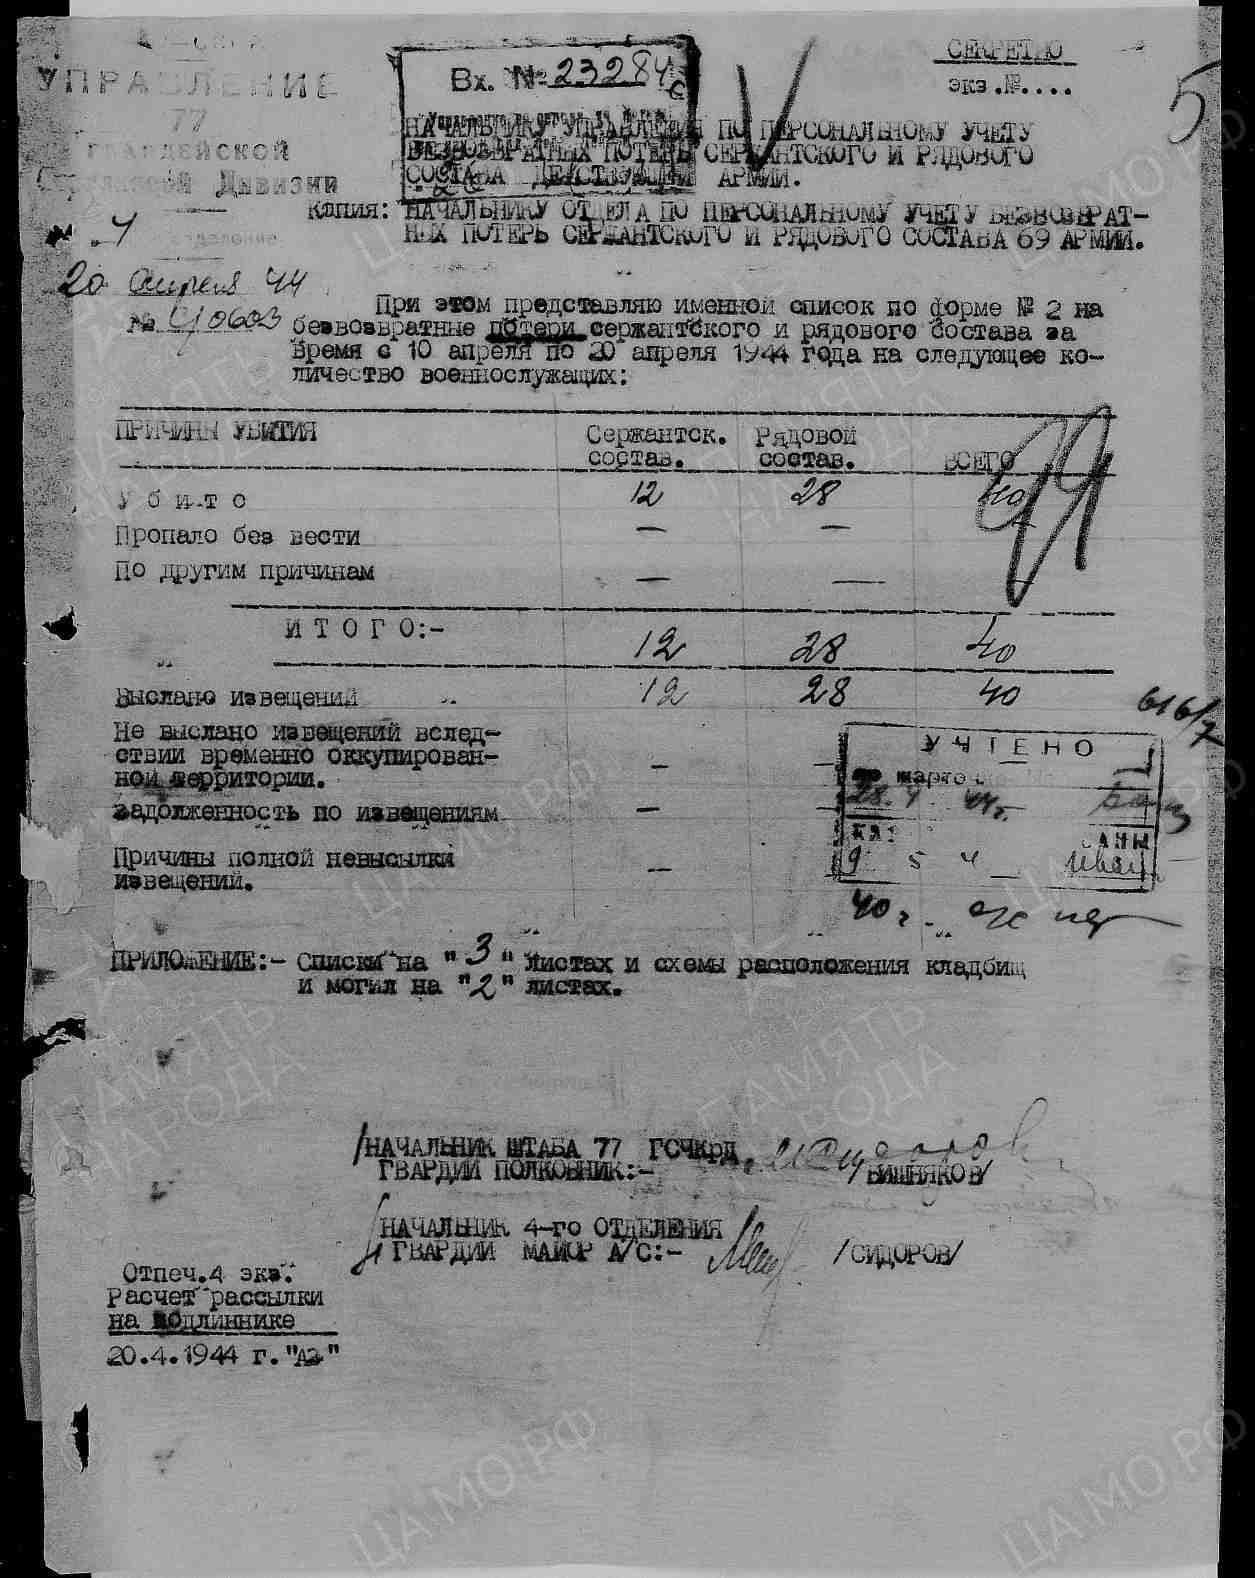 СЕКРЕТНО
экз.№....
5
УПРАВЛЕНИЕ
77
ГВАРДЕЙСКОЙ
Дивизии
4 отделение
20 апреля 44
№ 40603
Вх. № 23284с
НАЧАЛЬНИКУ УПРАВЛЕНИЯ ПО ПЕРСОНАЛЬНОМУ УЧЕТУ
БЕЗВОЗВРАТНЫХ ПОТЕРЬ СЕРЖАНТСКОГО И РЯДОВОГО
СОСТАВА ДЕЙСТВУЮЩЕЙ АРМИИ.
Копия: НАЧАЛЬНИКУ ОТДЕЛА ПО ПЕРСОНАЛЬНОМУ УЧЕТУ БЕЗВОЗВРАТ-
НЫХ ПОТЕРЬ СЕРЖАНТСКОГО И РЯДОВОГО СОСТАВА 69 АРМИИ.
При этом представляю именной список по форме № 2 на
безвозвратные потери сержантского и рядового состава за
время с 10 апреля по 20 апреля 1944 года на следующее ко-
личество военнослужащих:
ПРИЧИНЫ УБИТИЯ Сержантск. состав. Рядовой состав. ВСЕГО
У б и т о 12 28 40
Пропало без вести — —
По другим причинам — —
И Т О Г О:- 12 28 40
Выслано извещений 12 28 40
616/7
Не выслано извещений вслед-
ствии временно оккупирован-
ной территории. —
Задолженность по извещениям —
Причины полной невысылки
извещений. —
УЧТЕНО
28.4 44г.
9 5 4
40г.
ПРИЛОЖЕНИЕ:- Списки на "3" листах и схемы расположения кладбищ
и могил на "2" листах.
/НАЧАЛЬНИК ШТАБА 77 ГСЧКРД
ГВАРДИИ ПОЛКОВНИК:- /ВИШНЯКОВ/
/НАЧАЛЬНИК 4-го ОТДЕЛЕНИЯ
ГВАРДИИ МАЙОР А/С:- /СИДОРОВ/
Отпеч.4 экз.
Расчет рассылки
на подлиннике
20.4.1944 г. "АЗ"
ПАМЯТЬ
НАРОДА
ЦАМО.РФ